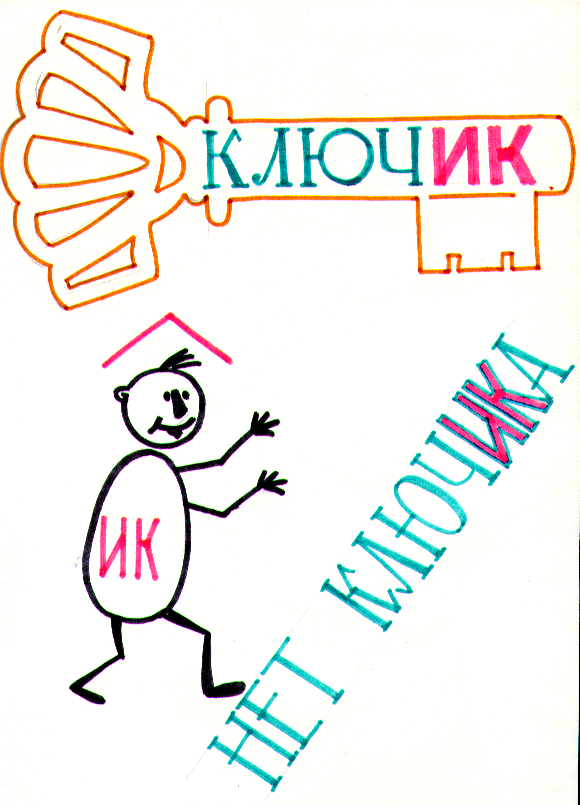 КЛЮЧИК
ИК
НЕТ КЛЮЧИКА